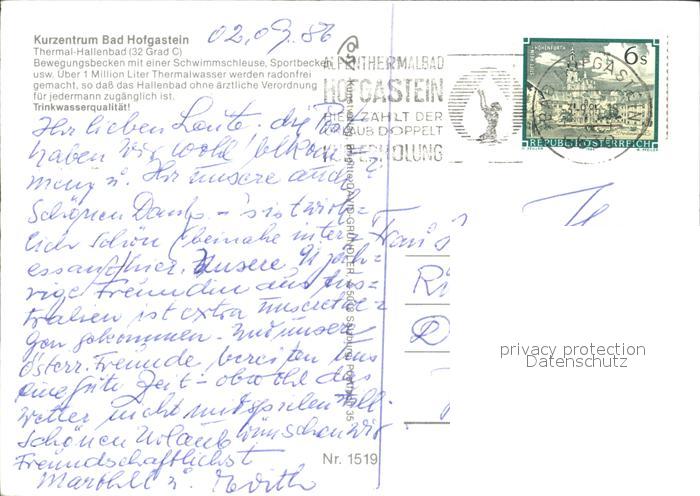 Kurzentrum Bad Hofgastein
Thermal-Hallenbad (32 Grad C)
Bewegungsbecken mit einer Schwimmschleuse, Sportbecken
usw. Über 1 Million Liter Thermalwasser werden radonfrei
gemacht, so daß das Hallenbad ohne ärztliche Verordnung
für jedermann zugänglich ist.
Trinkwasserqualität!
02.09.86
Ihr lieben Leute. die
haben wir wohl bekom=
men u. Ihr unsere auch?
Schönen Dank - 's ist wirk=
lich schön (beinahe inter=
essant) hier. Unsere 91 jäh=
rige Freundin aus Aus=
tralien ist extra unseretwe=
gen gekommen. Und unsere
österr. Freunde bereiten uns
eine gute Zeit - obwohl das
Wetter nicht mitspielen will.
Schönen Urlaub wünschen wir
Freundschaftlichst
u. Edith
ALPENTHERMALBAD
HOFGASTEIN
HIER ZÄHLT DER
URLAUB DOPPELT
6s
REPUBLIK ÖSTERREICH
Nr. 1519
privacy protection
Datenschutz